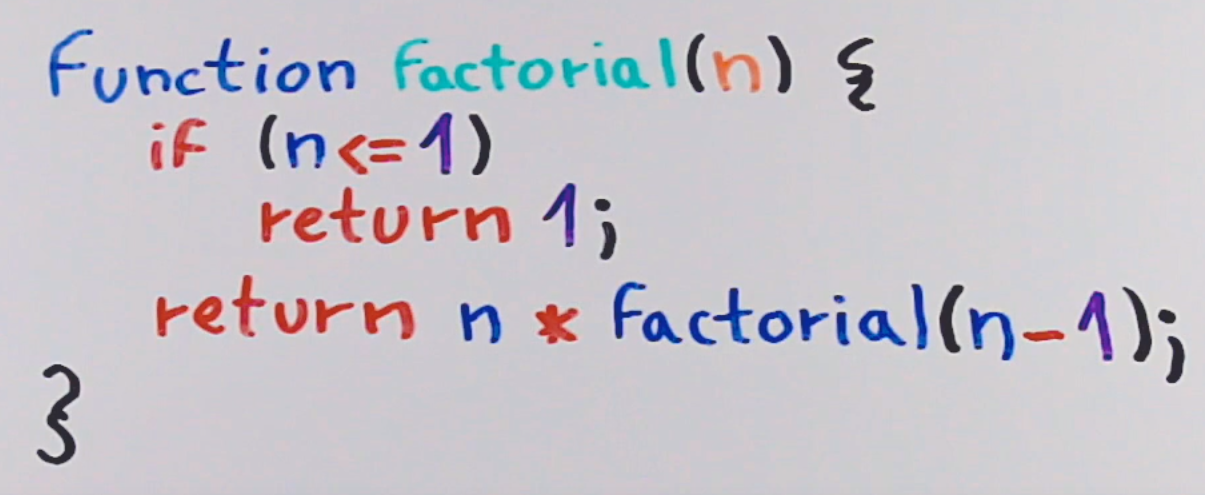 function factorial(n) {
if (n<=1)
return 1;
return n * factorial(n-1);
}